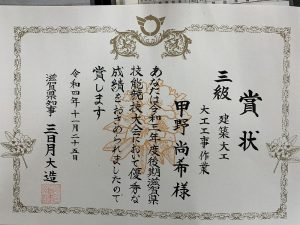 賞状
三級 建築大工
大工工事作業
甲野 尚希 様
あなたは令和四年度後期滋賀県
技能競技大会において優秀な
成績をおさめられましたので
賞します
令和四年十一月二十五日
滋賀県知事 三日月大造